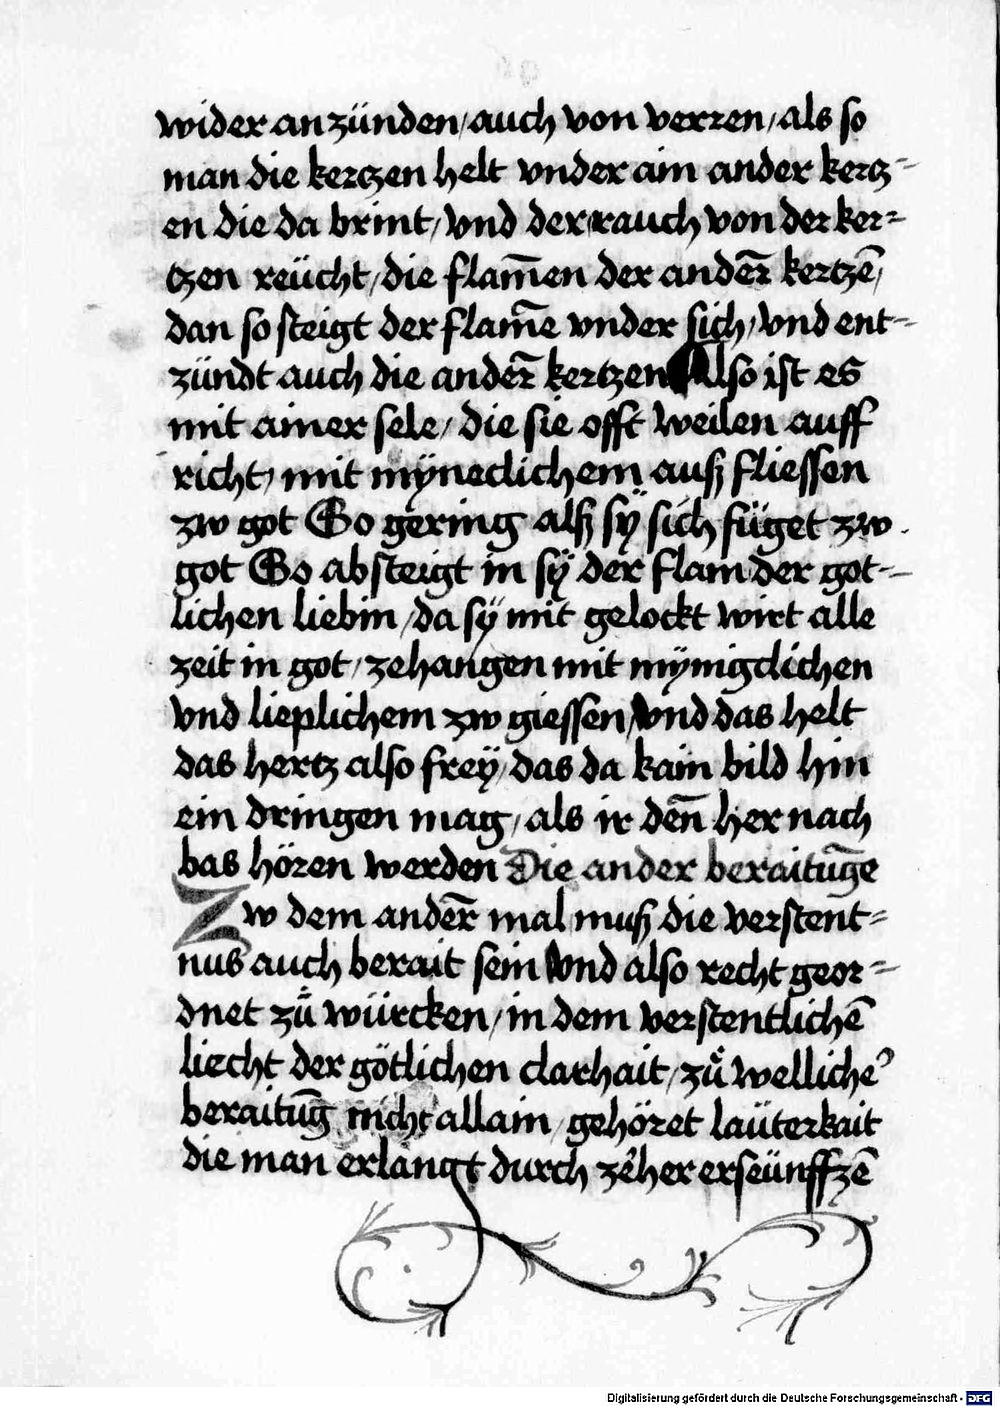 wider anzünden/auch von verren/als so
man die kerczen helt vnder ain ander kercz=
en die da brint/vnd der rauch von der ker=
tzen reücht/die flam̄en der ander̄ kertzē/
dan so steigt der flam̄e vnder sich/vnd ent=
zündt auch die ander̄ kertzen Also ist es
mit ainer sele/die sie offt weilen auff
richt/mit mÿneclichem auß fliessen
zw got So gering alß sÿ sich füget zw
got So absteigt in sÿ der flam der got=
lichen liebin/da sÿ mit gelockt wirt alle
zeit in got/zehangen mit mÿnigclichen
vnd lieplichem zw giessen/vnd das helt
das hertz also freÿ/das da kain bild hin
ein dringen mag/als ir den̄ her nach
bas hören werden Die ander beraitūge
Zw dem ander̄ mal muß die verstent=
nus auch berait sein vnd also recht geor=
dnet zů würcken/in dem verstentlichē
liecht der götlichen clarhait/zů welliche᾽
beraitūg nicht allain gehöret laüterkait
die man erlangt durch zeher erseünffzē
Digitalisierung gefördert durch die Deutsche Forschungsgemeinschaft - DFG